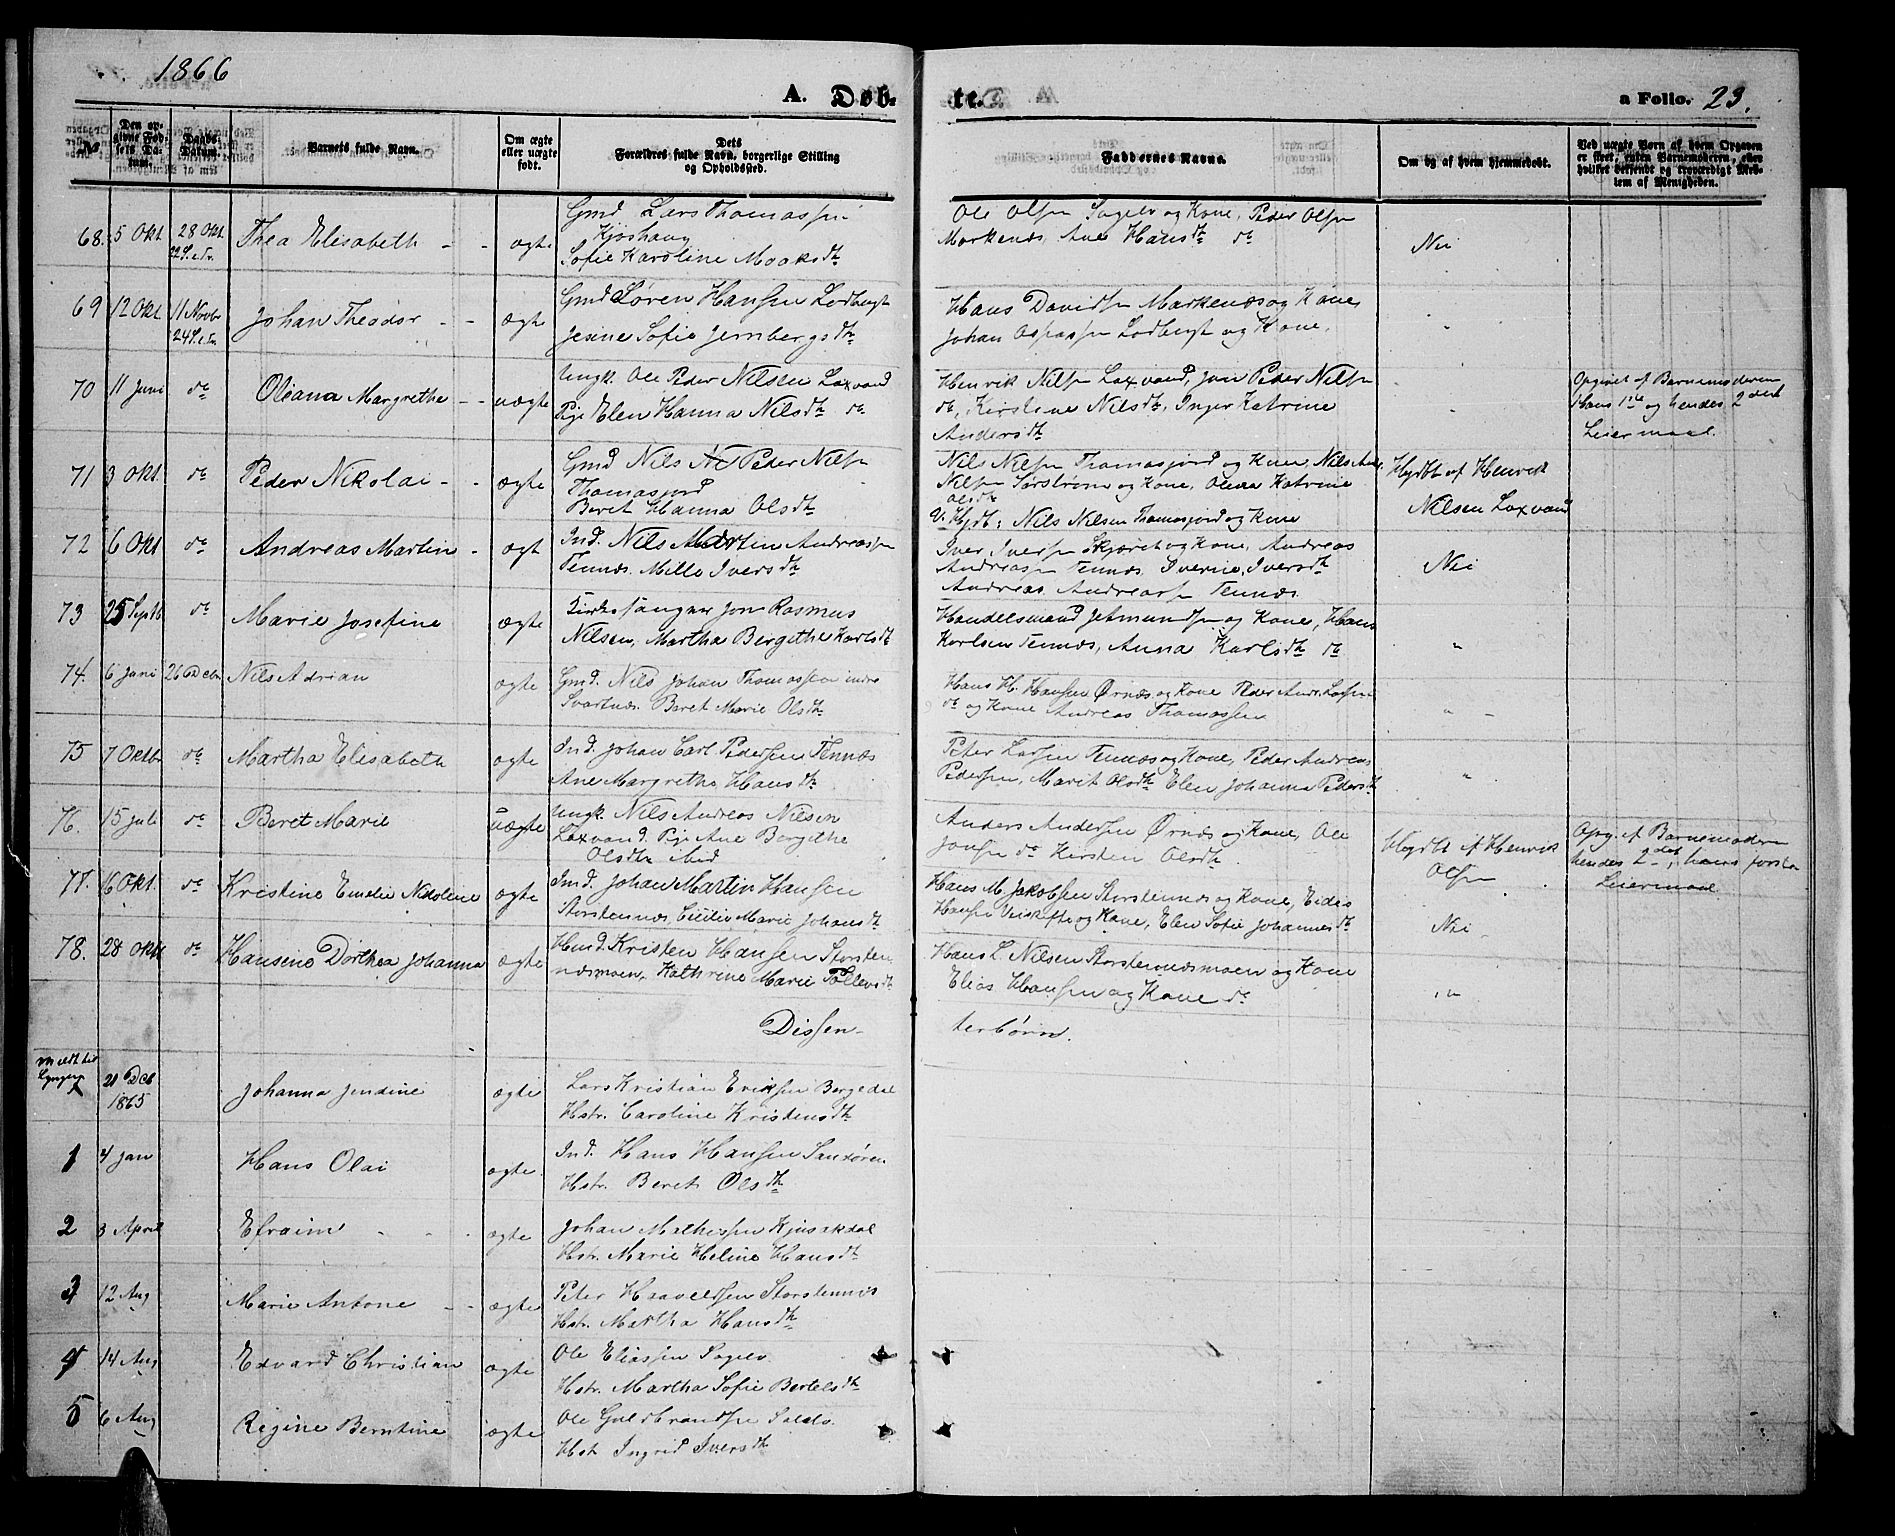 1866
A. Døb- te. a Folio. 23.
№
Den opgivne Fødsels Datum.
Daabs Datum.
Barnets fulde Navn.
Om ægte eller uægte født.
Dets Forældres fulde Navn, borgerlige Stilling og Opholdssted.
Faddernes Navne.
Om og af hvem hjemmedøbt.
Ved uægte Børn af hvem Opgaven er skeet, enten Barnemoderen, eller hvilket bekjendt og troværdigt Medlem af Menigheden.
68. 5 Okt 28 Okt Thea Elisabeth - - ægte Gmd Lars Thomassen
22 S. e. Tr. Sofie Karoline Moaksdtr
Ole Olsen Sagelv og Kone, Peder Olsen
Markenæs, Ane Hansdtr do
Nei
69 12 Okt 11 Novbr Johan Theodor - - ægte Gmd Søren Hansen
24 S. e. Tr. Jesine Sofie Jernbergsdtr
Hans Davidsen Markenæs og Kone,
Johan og Kone.
"
70 11 Juni do Oliana Margrethe - - uægte Ungk. Ole Peder Nilsen Laxvand
Pige Elen Hanna Nilsdtr do
Henrik Nilsen Laxvand, Jon Peder Nilsen
do, Kirstine Nilsdtr, Inger Katrine
Andersdtr
"
Opgivet af Barnemoderen
Hans 1ste og hendes 2det
Leiermaal.
71 3 Okt. do Peder Nikolai - - ægte Gmd Nils Peder Nilsen
Thomasjord
Beret Hanna Olsdtr
Nils Nilsen Thomasjord og Kone, Nils
Nilsen Sørstrøm og Kone, Olina Katrine
Olsdtr
V. Hjdb: Nils Nilsen Thomasjord og Kone
Hjdbt af Henrik
Nilsen Laxvand
72 6 Okt do Andreas Martin - ægt Ind. Nils Martin Andreassen
Tennes. Mille Iversdtr
Iver Iversen Skjæret og Kone, Andreas
Andreasen Tennæs Iverine Iversdtr
Andreas Andreasen Tennæs.
Nei
73 25 Septb do Marie Josefine ægte Kirkesanger Jon Rasmus
Nilsen, Martha Bergithe Karlsdtr
Handelsmand og Kone, Hans
Karlsen Tennæs, Anna Karlsdtr do
"
74. 6 Juni 26 Decbr Nils Adrian ægte Gmd. Nils Johan Thomassen indre
Svartnæs. Beret Marie Olsdtr
Hans H. Hansen Ørnæs og Kone Peder Andr. Larsen
do og Kone Andreas Thomassen
"
75 7 Oktbr do Martha Elisabeth ægte Ind. Johan Carl Pedersen Tennæs
Ane Margrethe Hansdtr
Peter Larsen Tennæs og Kone, Peder Andreas
Pedersen, Marit Olsdtr Elen Johanna Pedersdtr
"
76. 15 Juli do Beret Marie uægte Ungk. Nils Andreas Nilsen
Laxvand. Pige Ane Bergithe
Olsdtr
Anders Andersen Ørnæs og Kone, Ole
Jonsen do Kirsten Olsdtr.
Hjdbt af Henrik
Olsen
Opg. af Barnemoderen
hendes 2det, hans første
Leiermaal
77. 16 Okt. do Kristine Emelie Nikoline ægte Ind. Johan Martin Hansen
Storstennæs, Cicilie Marie Johansdtr
Hans M. Jakobsen Storstennæs og Kone, Eidis
Hansen og Kone, Elen Sofie Johannesdtr
Nei
78. 28 Okt do Hansine Dorthea Johanna ægte Hmd. Kristen Hansen Storsten-
næsmoen, Kathrine Marie Tollevsdtr
Hans L. Nilsen Storstennæsmoen og Kone
Elias Hansen og Kone do
"
Dissen- terbørn.
21 Dcb
1865
Johanna Jendine ægte Lars Kristian Eriksen Bergedal
Hstr. Caroline Kristensdtr
1 4 Jan Hans Olai ægte Ind. Hans Hansen Sandøren
Hstr. Beret Olsdtr
2 3 April Efraim - - - ægte Johan Mathisen
Hstr. Marie Heline Hansdtr
3 12 Aug Marie Antone - - ægte Peter Haavelsen Storstennæs
Hstr. Martha Hansdtr
4 14 Aug Edvard Christian ægte Ole Eliassen Sagelv
Hstr. Martha Sofie Bertelsdtr
5 6 Aug Regine Berntine ægte Ole Guldbrandsen
Hstr Ingrid Iversdtr